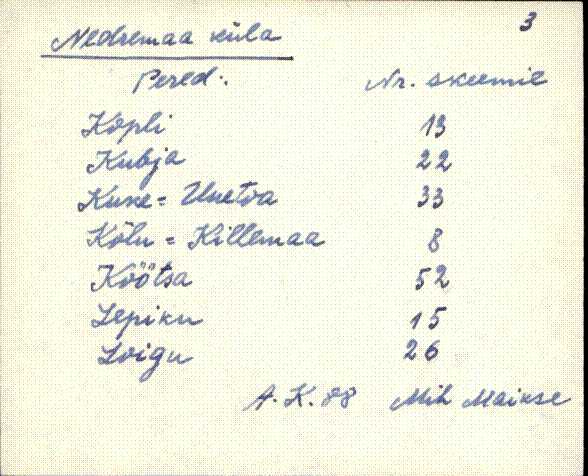 3
Nedremaa küla
Pered. Nr. skeemil
Kopli 13
Kubja 22
Kuke = Uuetoa 33
Kõlu = Killemaa 8
Köötsa 52
Lepiku 15
Loigu 26
A. K. 88 Mih Maikse